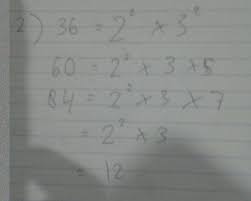 2) 36 = 2² × 3²
60 = 2² × 3 × 5
84 = 2² × 3 × 7
= 2² × 3
= 12